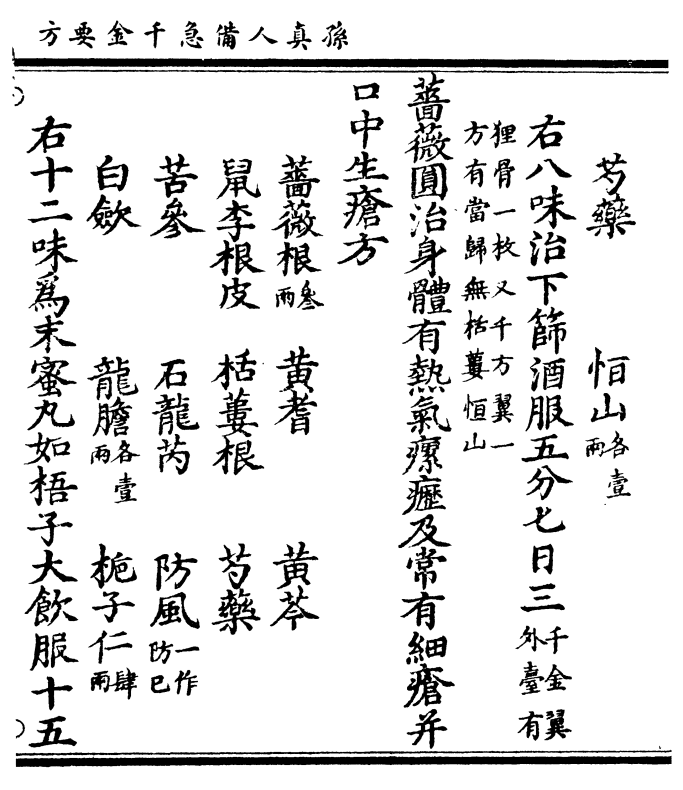 孫真人備急千金要方
芍藥 恒山各壹兩
右八味治下篩酒服五分七日三千金翼外臺有
狸骨一枚又千方翼一
方有當歸無栝蔞恒山
薔薇圓治身體有熱氣瘰癧及常有細瘡并
口中生瘡方
薔薇根叄兩 黃耆 黃芩
鼠李根皮 栝蔞根 芍藥
苦參 石龍芮 防風一作防已
白歛 龍膽各壹兩 梔子仁肆兩
右十二味爲末蜜丸如梧子大飲服十五